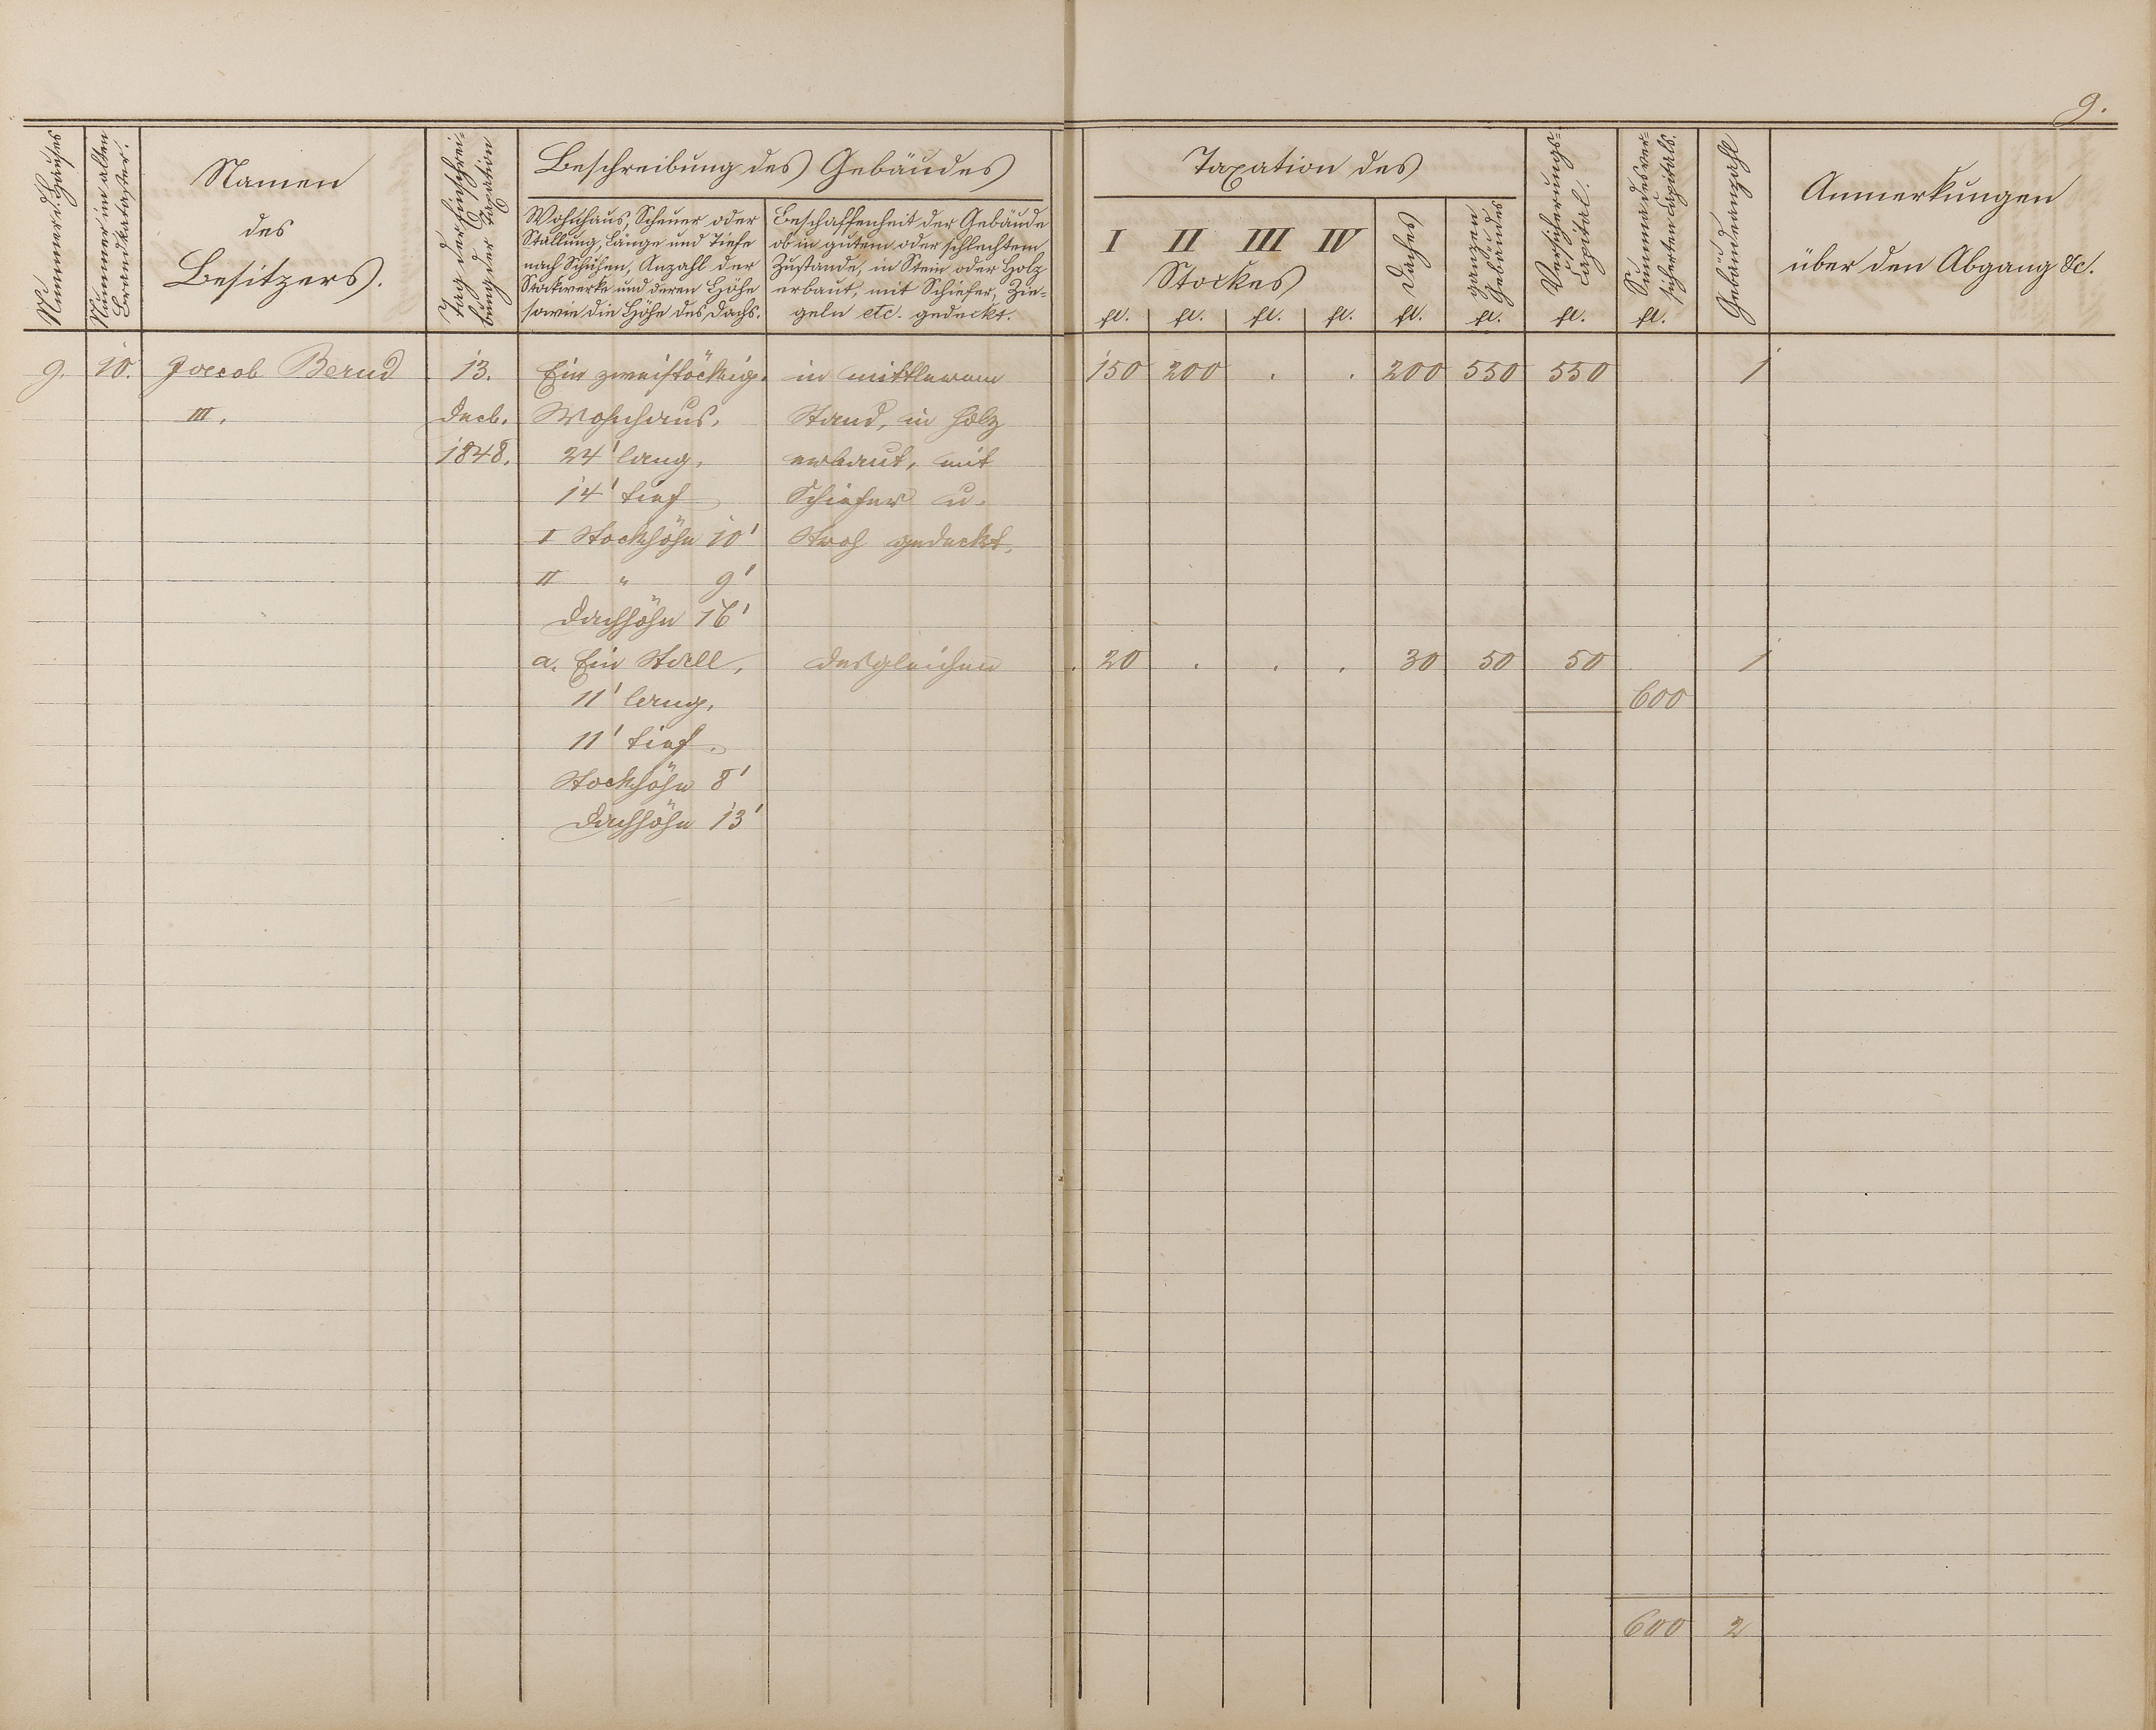 9.
Nummer d. Hauses
Nummer im alten Brandkataster.
Namen
des
Besitzers.
Tag der Einschrei-
bung der Taxation
Beschreibung des Gebäudes
Wohnhaus, Scheuer oder
Stallung, Länge und Tiefe
nach Schuhen, Anzahl der
Stockwerke und deren Höhe
sowie die Höhe des Dachs.
Beschaffenheit der Gebäude
ob in gutem oder schlechtem
Zustande, in Stein oder Holz
erbaut, mit Schiefer, Zie-
geln etc. gedeckt.
Taxation des
I II III IV
Stockes
Daches
ganzen
Gebäudes
Versicherungs-
Capital.
Summa des ver-
sicherten Capitals.
Gebäudeanzahl
Anmerkungen
über den Abgang &c.
fl. fl. fl. fl. fl. fl. fl. fl.
9. 10. Jacob Bernd 13. Ein zweistöckig. in mittlerem 150 200 . . 200 550 550 1
III. Decb. Wohnhaus, Stand, in Holz
1848. 24' lang, erbaut, mit
14' tief Schiefer u.
I Stockhöhe 10' Stroh gedeckt.
II " 9'
Dachhöhe 16'
a. Ein Stall, desgleichen 20 . . . 30 50 50 1
11' lang, 600
11' tief,
Stockhöhe 8'
Dachhöhe 13'
600 2